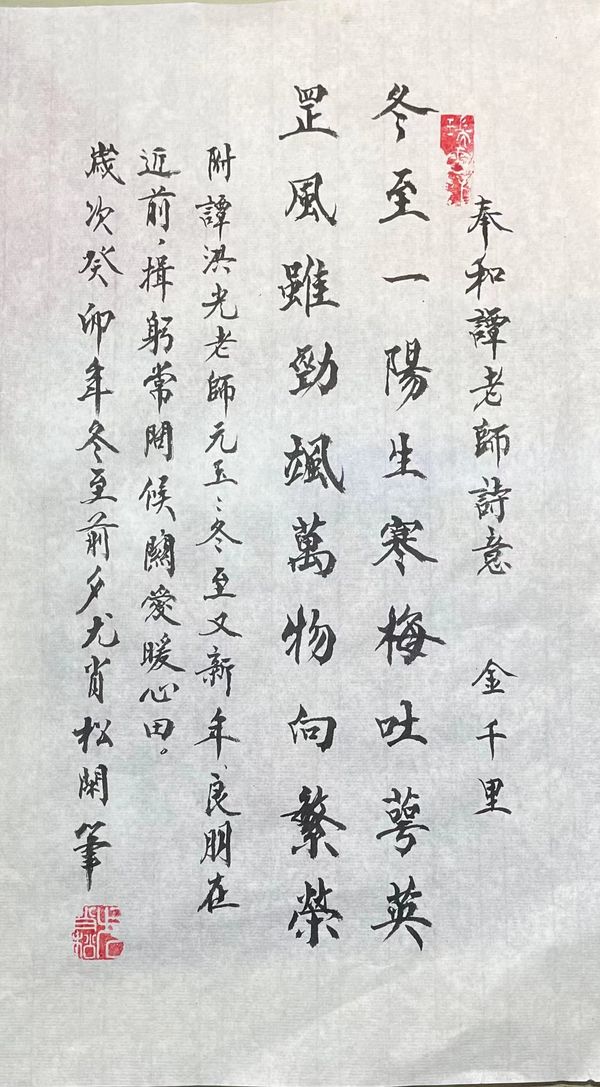 奉和譚老師詩意 金千里
冬至一陽生寒梅吐萼英
罡風雖勁颯萬物向繁榮
附譚洪光老師元玉：冬至又新年、良朋在
近前，揖躬常問候關愛暖心田。
歲次癸卯年冬至前夕尤肖松閑筆